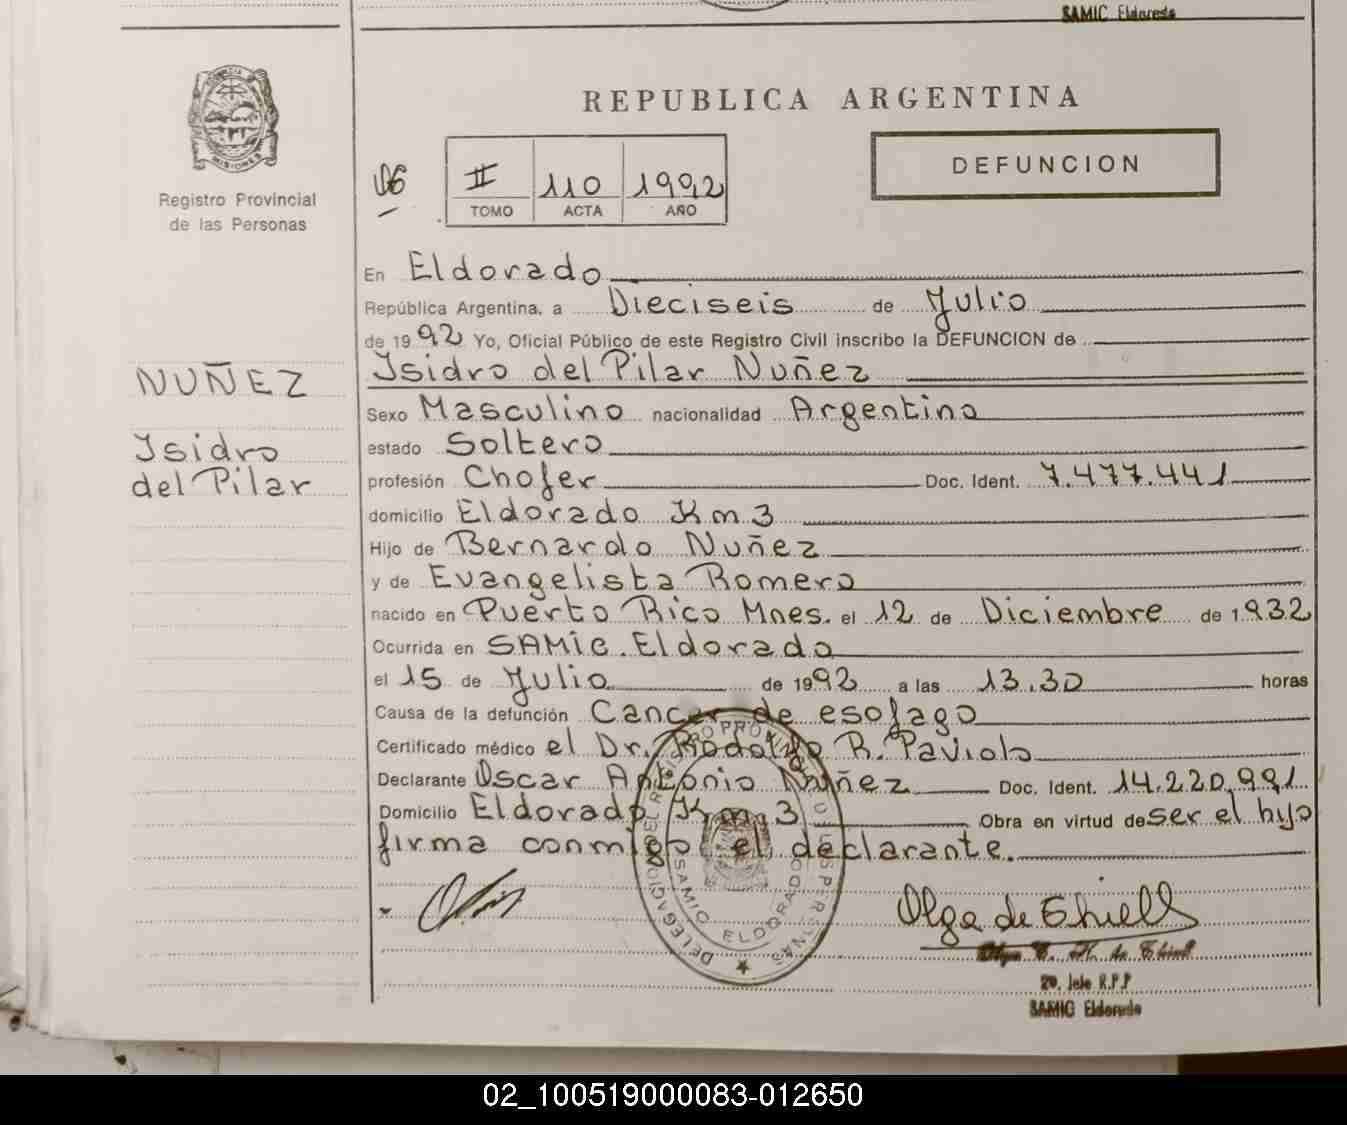 SAMIC Eldorado
PROVINCIA DE
MISIONES
Registro Provincial
de las Personas
REPUBLICA ARGENTINA
DEFUNCION
06
II 110 1992
TOMO ACTA AÑO
NUÑEZ
Isidro
del Pilar
En Eldorado
República Argentina, a Dieciseis de Julio
de 1992 Yo, Oficial Público de este Registro Civil inscribo la DEFUNCION de
Isidro del Pilar Nuñez
Sexo Masculino nacionalidad Argentina
estado Soltero
profesión Chofer Doc. Ident. 7.477.441
domicilio Eldorado Km 3
Hijo de Bernardo Nuñez
y de Evangelista Romero
nacido en Puerto Rico Mnes. el 12 de Diciembre de 1.932
Ocurrida en SAMIC. Eldorado
el 15 de Julio de 1992 a las 13.30 horas
Causa de la defunción Cancer de esofago
Certificado médico el Dr. Rodolfo R. Paviolo
Declarante Oscar Antonio Nuñez Doc. Ident. 14.220.991
Domicilio Eldorado Km. 3 Obra en virtud de ser el hijo
firma conmigo el declarante.
DELEGACION DEL REGISTRO PROVINCIAL DE LAS PERSONAS
SAMIC ELDORADO
Olga de Thiell
2º. Jefe R.P.P
SAMIC Eldorado
02_100519000083-012650